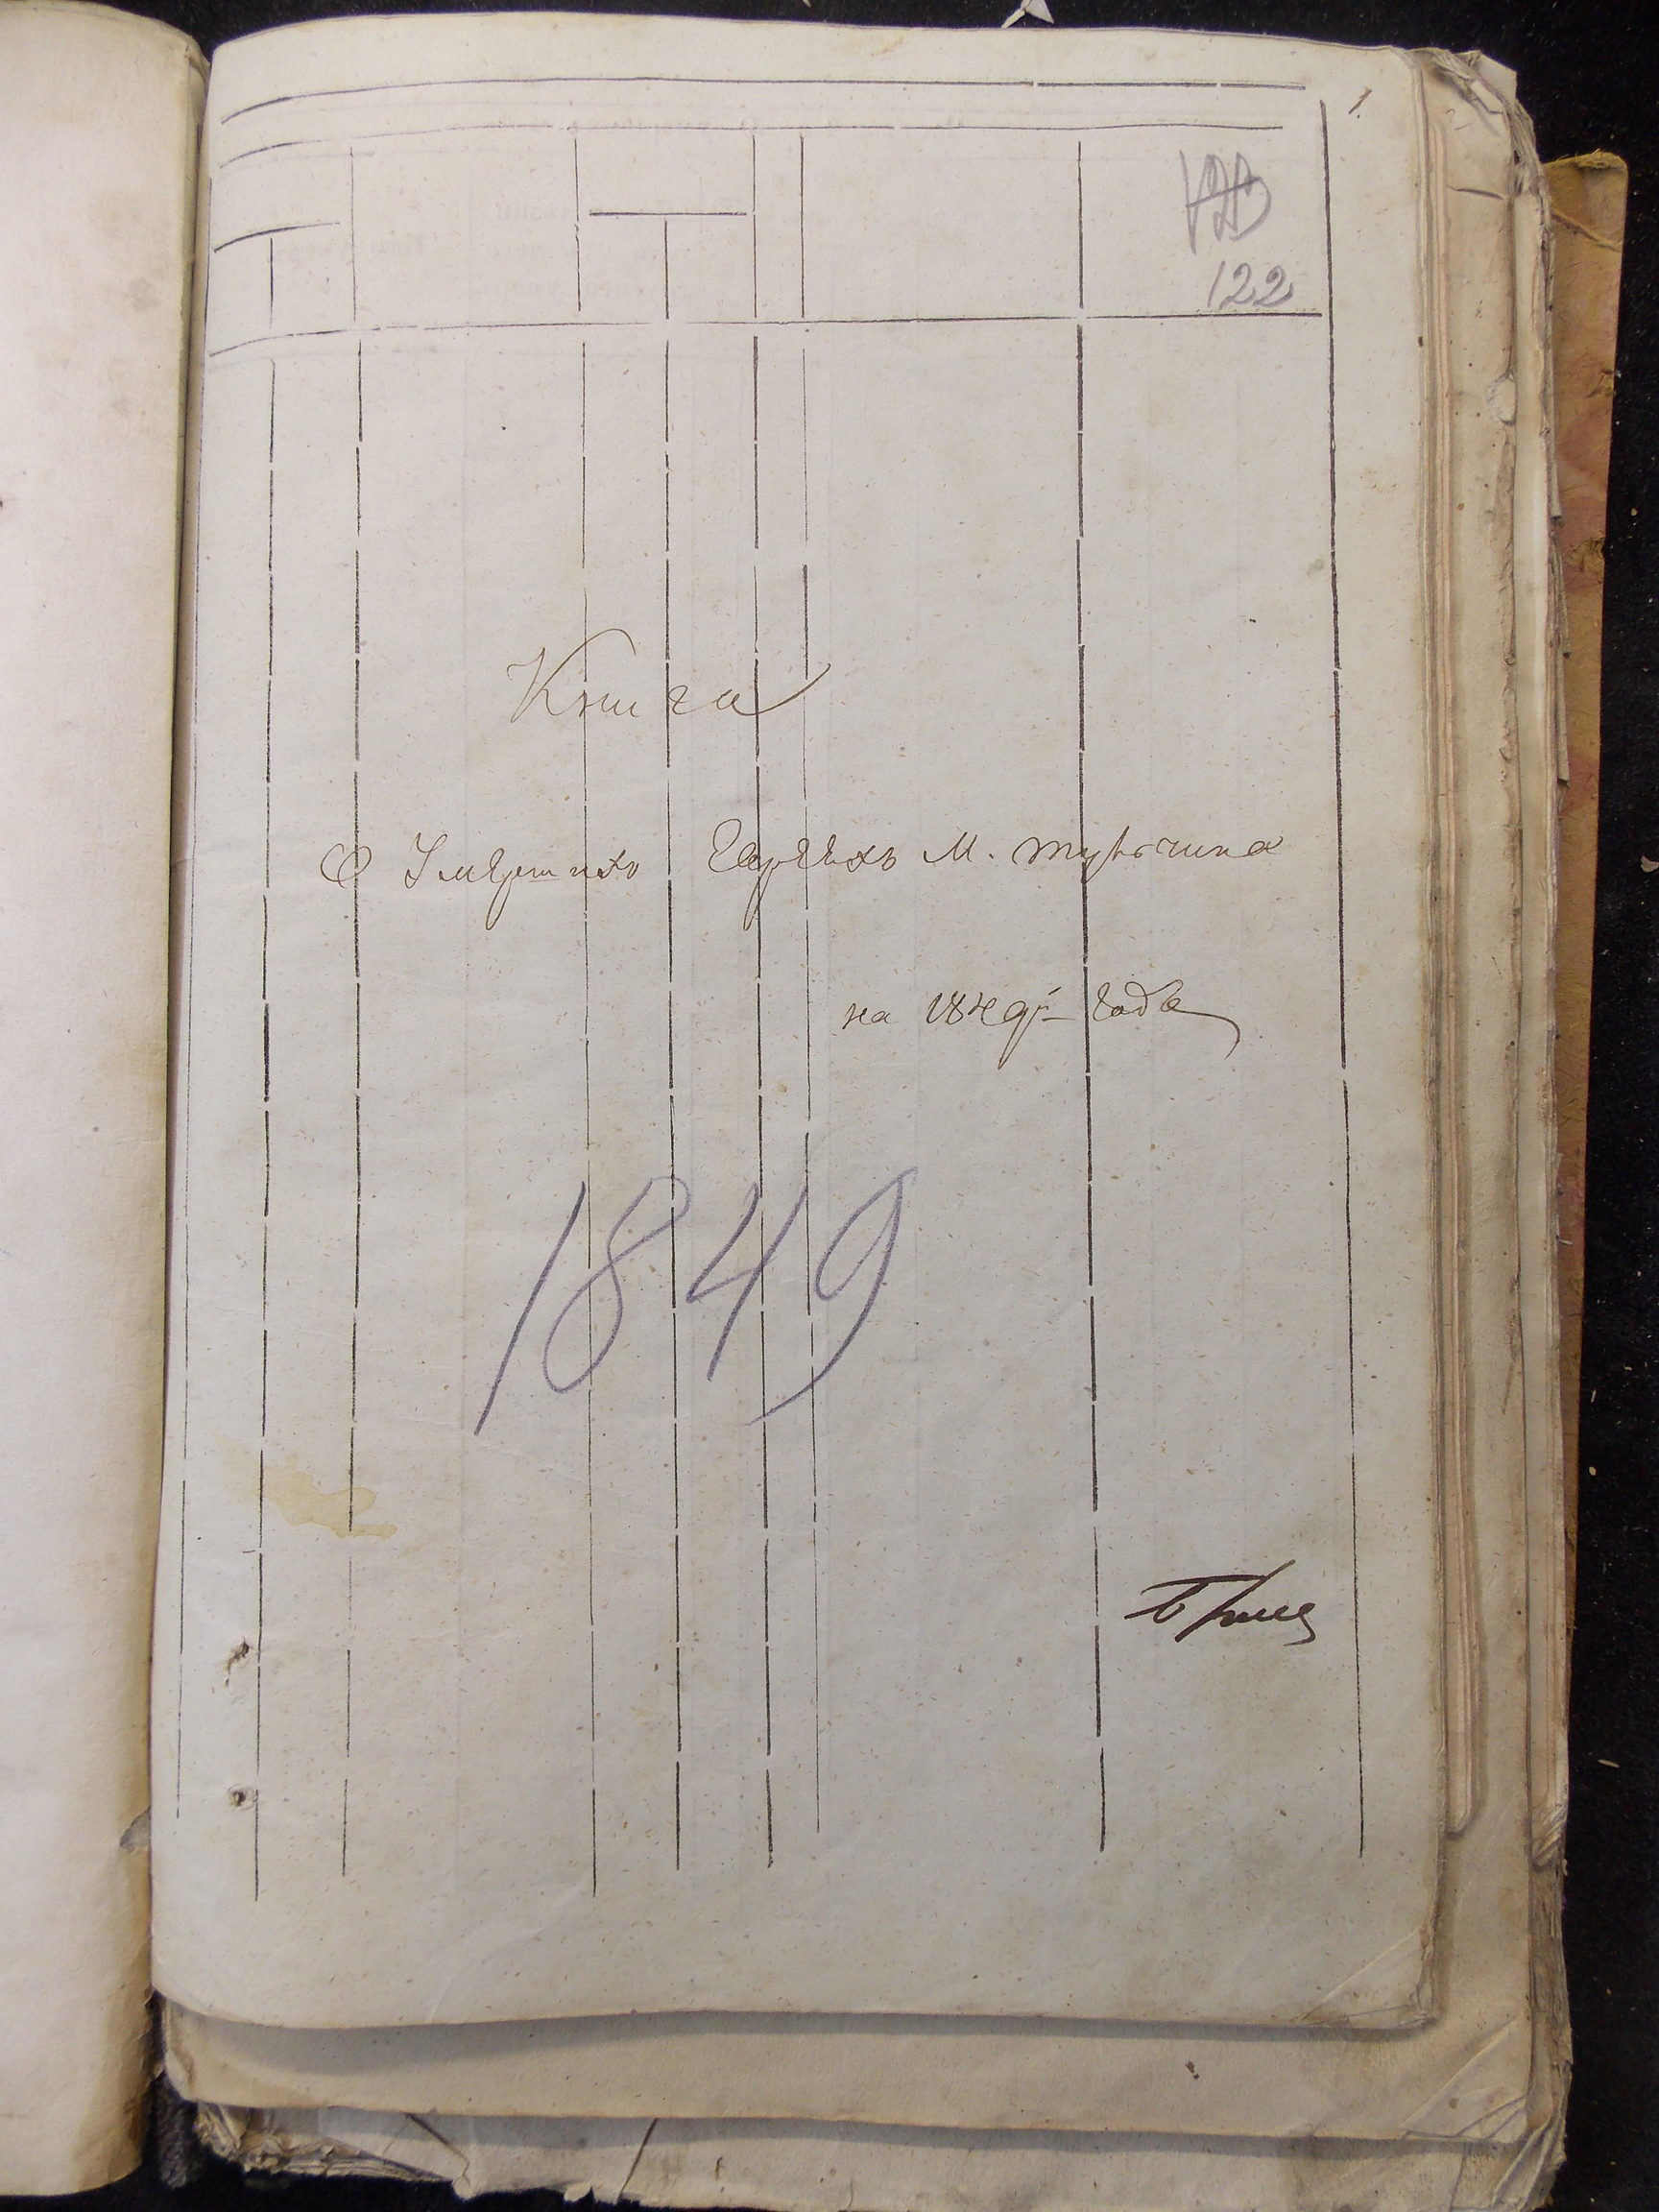 1.
122
Книга
О Умершихъ Евреяхъ М. Тульчина
на 1849й годъ
1849